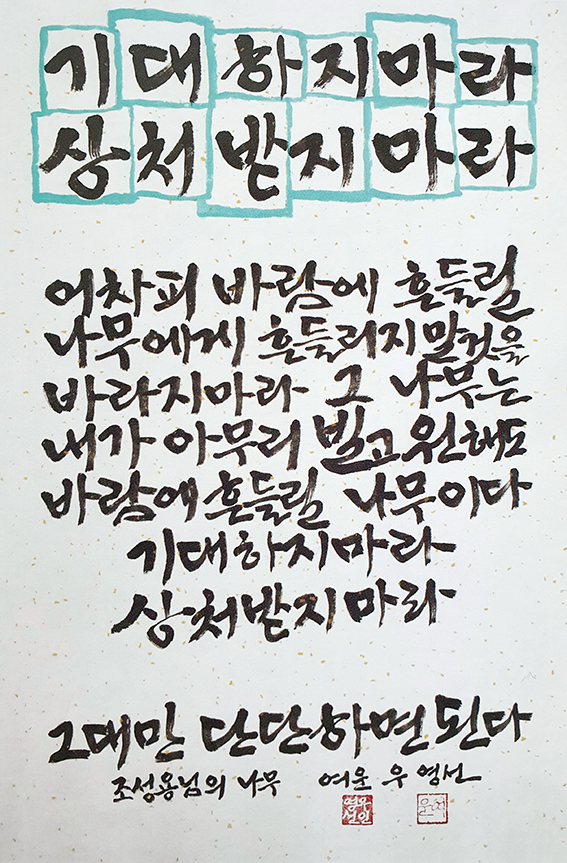 기대하지마라
상처받지마라
어차피 바람에 흔들릴
나무에게 흔들리지말것을
바라지마라 그 나무는
내가 아무리 빌고 원해도
바람에 흔들릴 나무이다
기대하지마라
상처받지마라
그대만 단단하면 된다
조성용님의 나무 여운 우 영선